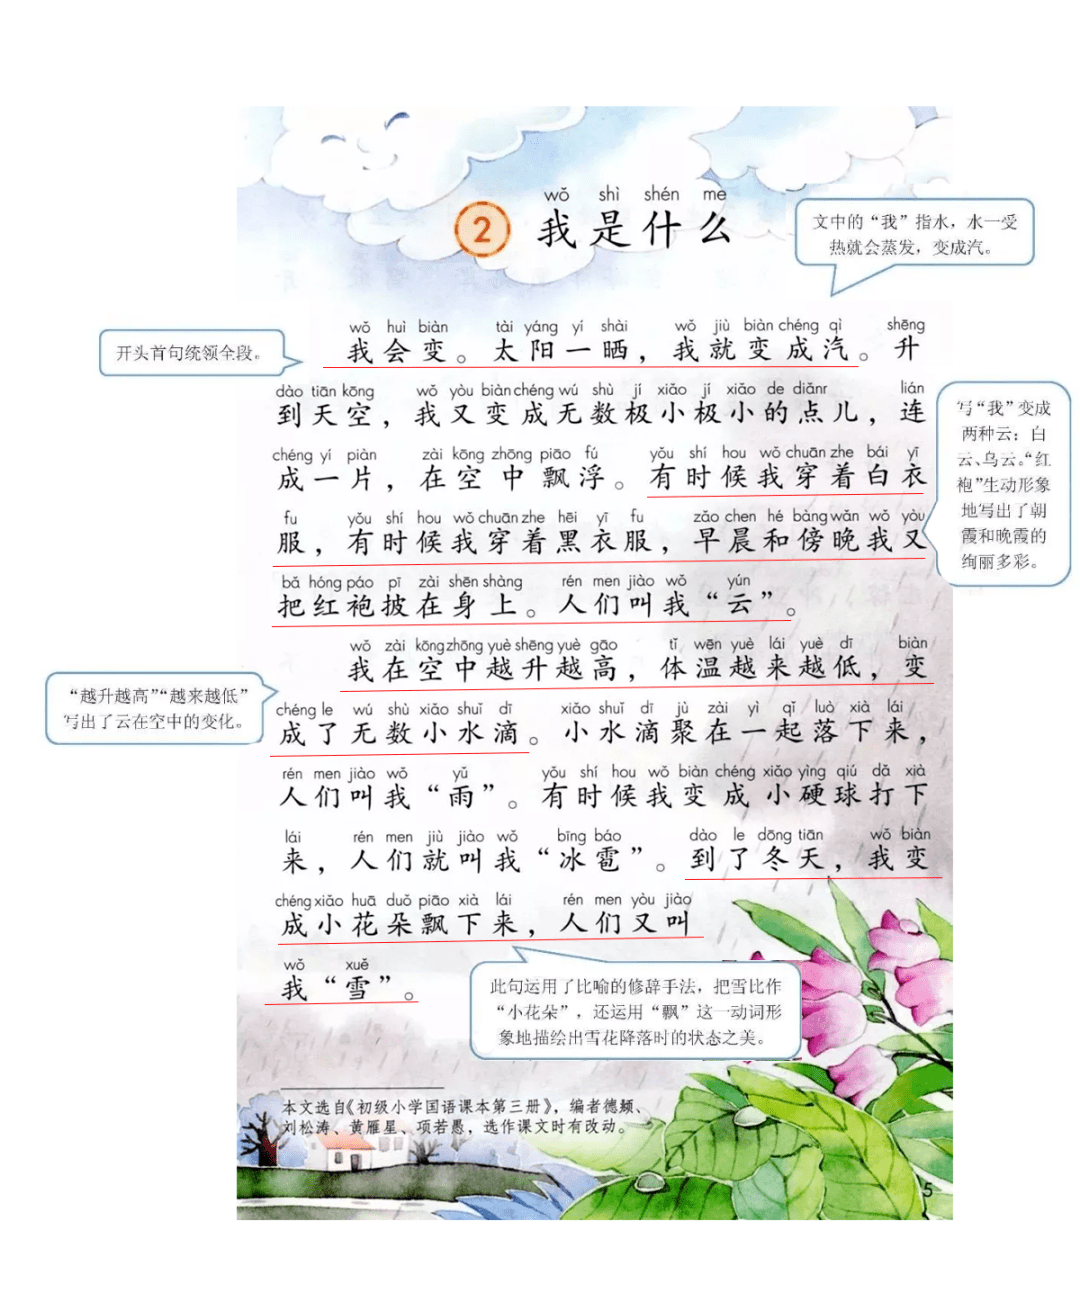 wǒ shì shén me
2 我是什么
文中的“我”指水，水一受
热就会蒸发，变成汽。
开头首句统领全段。
wǒ huì biàn tài yáng yí shài wǒ jiù biàn chéng qì shēng
我会变。太阳一晒，我就变成汽。升
dào tiān kōng wǒ yòu biàn chéng wú shù jí xiǎo jí xiǎo de diǎnr lián
到天空，我又变成无数极小极小的点儿，连
chéng yí piàn zài kōng zhōng piāo fú yǒu shí hou wǒ chuān zhe bái yī
成一片，在空中飘浮。有时候我穿着白衣
fu yǒu shí hou wǒ chuān zhe hēi yī fu zǎo chen hé bàng wǎn wǒ yòu
服，有时候我穿着黑衣服，早晨和傍晚我又
bǎ hóng páo pī zài shēn shàng rén men jiào wǒ yún
把红袍披在身上。人们叫我“云”。
写“我”变成
两种云：白
云、乌云。“红
袍”生动形象
地写出了朝
霞和晚霞的
绚丽多彩。
wǒ zài kōng zhōng yuè shēng yuè gāo tǐ wēn yuè lái yuè dī biàn
我在空中越升越高，体温越来越低，变
“越升越高”“越来越低”
写出了云在空中的变化。
chéng le wú shù xiǎo shuǐ dī xiǎo shuǐ dī jù zài yì qǐ luò xià lái
成了无数小水滴。小水滴聚在一起落下来，
rén men jiào wǒ yǔ yǒu shí hou wǒ biàn chéng xiǎo yìng qiú dǎ xià
人们叫我“雨”。有时候我变成小硬球打下
lái rén men jiù jiào wǒ bīng báo dào le dōng tiān wǒ biàn
来，人们就叫我“冰雹”。到了冬天，我变
chéng xiǎo huā duǒ piāo xià lái rén men yòu jiào
成小花朵飘下来，人们又叫
wǒ xuě
我“雪”。
此句运用了比喻的修辞手法，把雪比作
“小花朵”，还运用“飘”这一动词形
象地描绘出雪花降落时的状态之美。
本文选自《初级小学国语课本第三册》，编者德颖、
刘松涛、黄雁星、项若愚，选作课文时有改动。
5